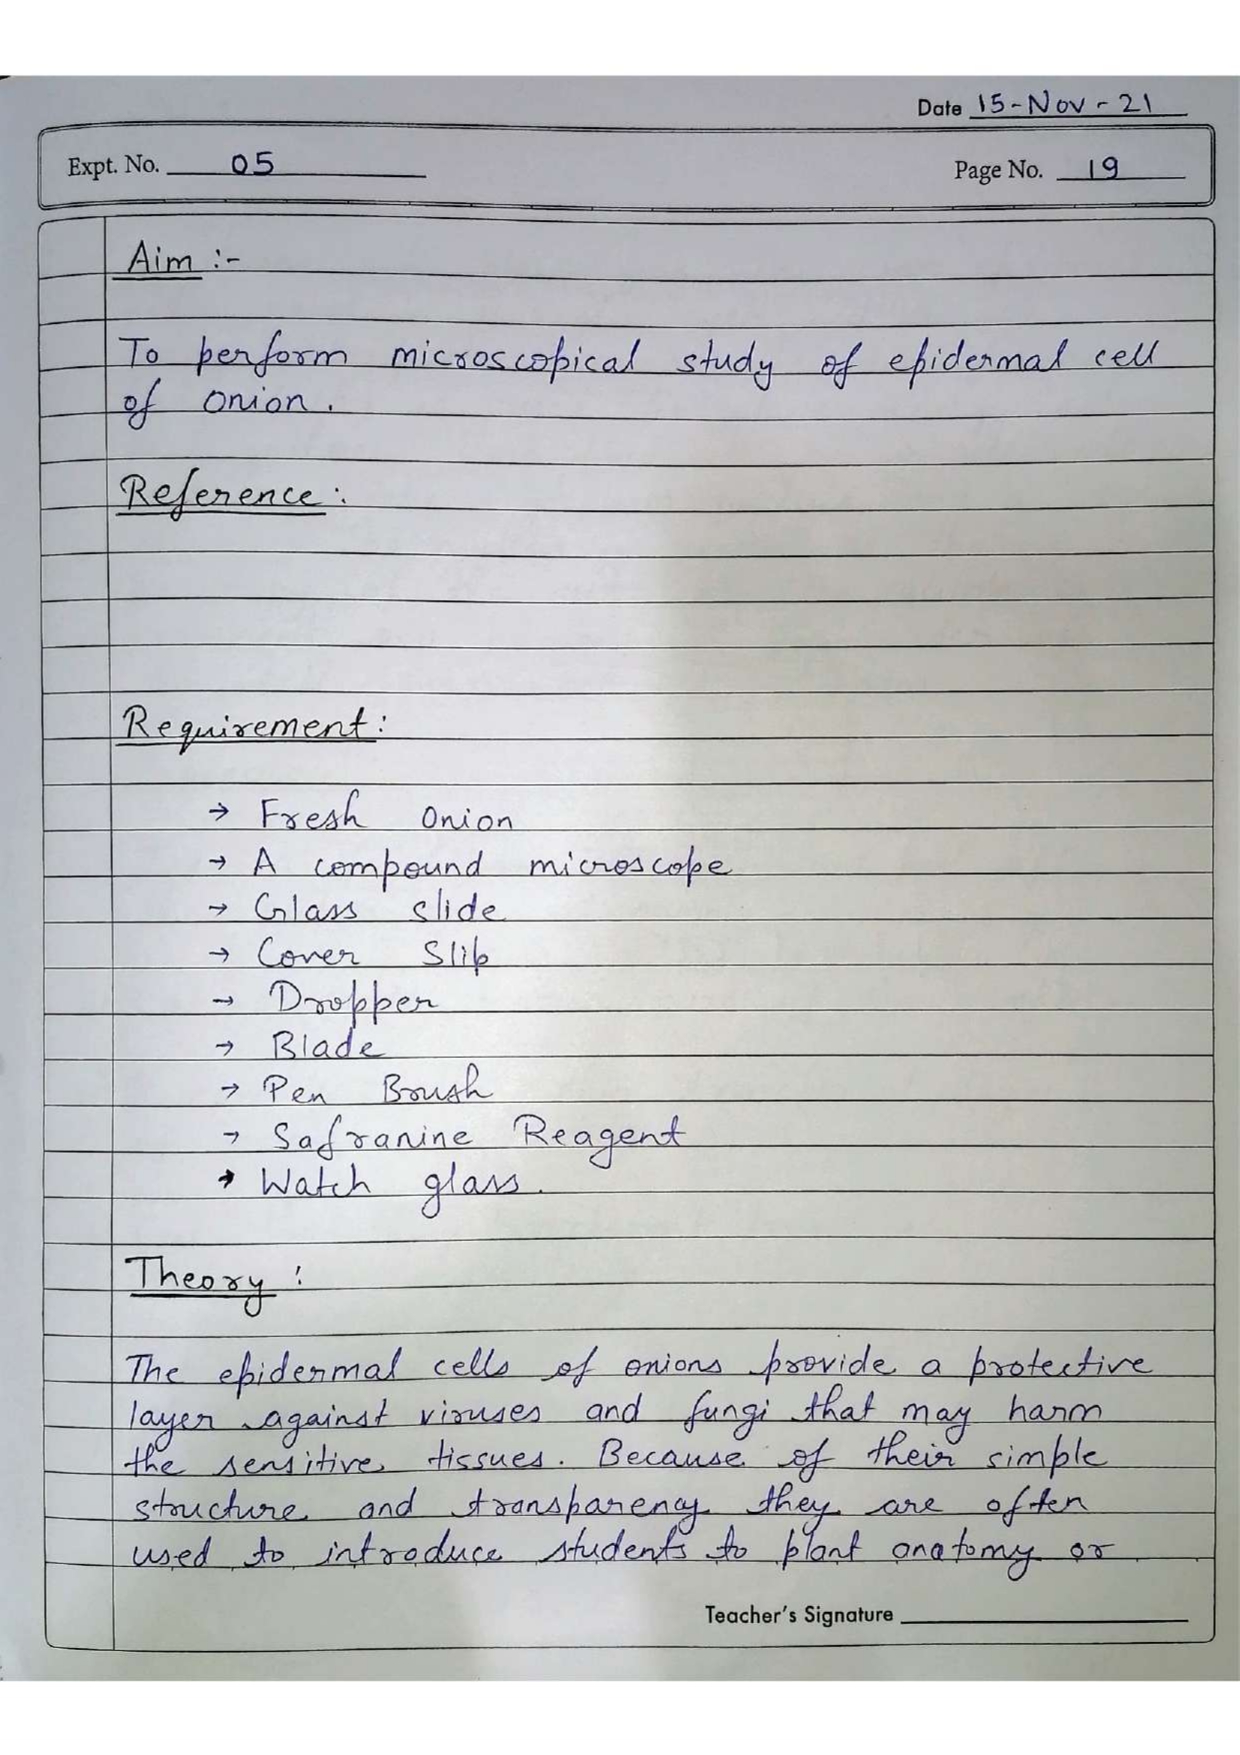 Date 15-Nov-21
Expt. No. 05
Page No. 19
Aim :-
To perform microscopical study of epidermal cell
of onion.
Reference :
Requirement :
→ Fresh Onion
→ A compound microscope
→ Glass slide
→ Cover Slip
→ Dropper
→ Blade
→ Pen Brush
→ Safranine Reagent
→ Watch glass.
Theory :
The epidermal cells of onions provide a protective
layer against viruses and fungi that may harm
the sensitive tissues. Because of their simple
structure and transparency they are often
used to introduce students to plant anatomy or
Teacher's Signature